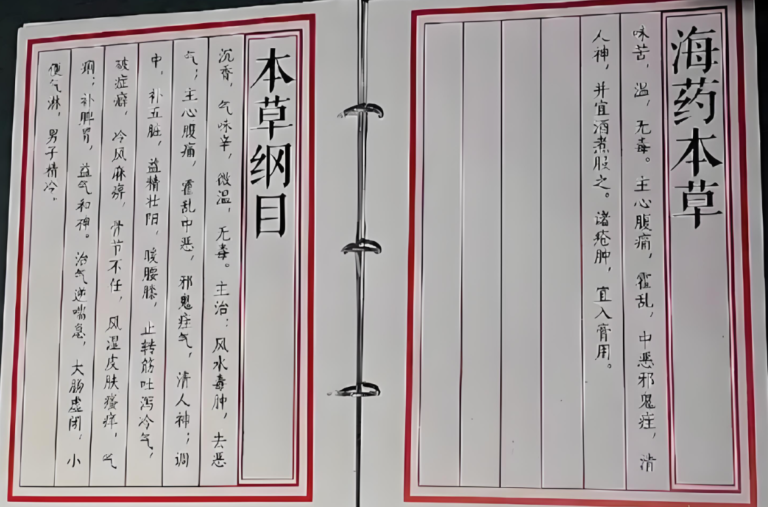 海药本草
味苦，温，无毒。主心腹痛，霍乱，中恶邪鬼疰，清
人神，并宜酒煮服之。诸疮肿，宜入膏用。
本草纲目
沉香，气味辛，微温，无毒。主治：风水毒肿，去恶
气；主心腹痛，霍乱中恶，邪鬼疰气，清人神；调
中，补五脏，益精壮阳，暖腰膝，止转筋吐泻冷气，
破症癖，冷风麻痹，骨节不任，风湿皮肤瘙痒，气
痢；补脾胃，益气和神。治气逆喘息，大肠虚闭，小
便气淋，男子精冷。